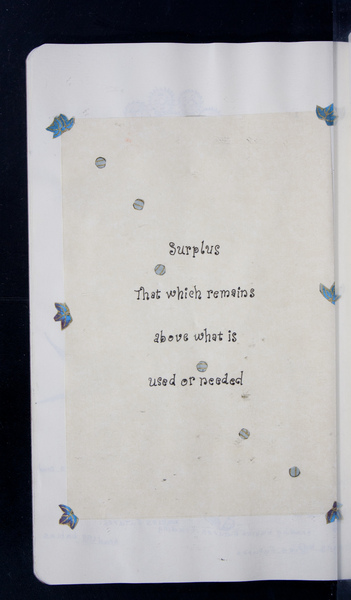 Surplus
That which remains
above what is
used or needed